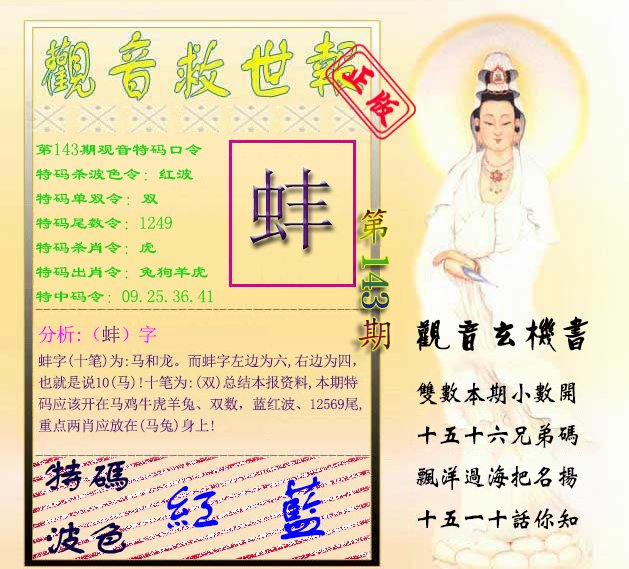 觀音救世報
正版
第143期观音特码口令
特码杀波色令: 红波
特码单双令: 双
特码尾数令: 1249
特码杀肖令: 虎
特码出肖令: 兔狗羊虎
特中码令: 09.25.36.41
蚌
第143期
分析:（蚌）字
蚌字(十笔)为:马和龙。而蚌字左边为六,右边为四,
也就是说10(马)!十笔为:(双)总结本报资料,本期特
码应该开在马鸡牛虎羊兔、双数，蓝红波、12569尾,
重点两肖应放在(马兔)身上!
特碼
波色
紅 藍
觀音玄機書
雙數本期小數開
十五十六兄弟碼
飄洋過海把名揚
十五一十話你知